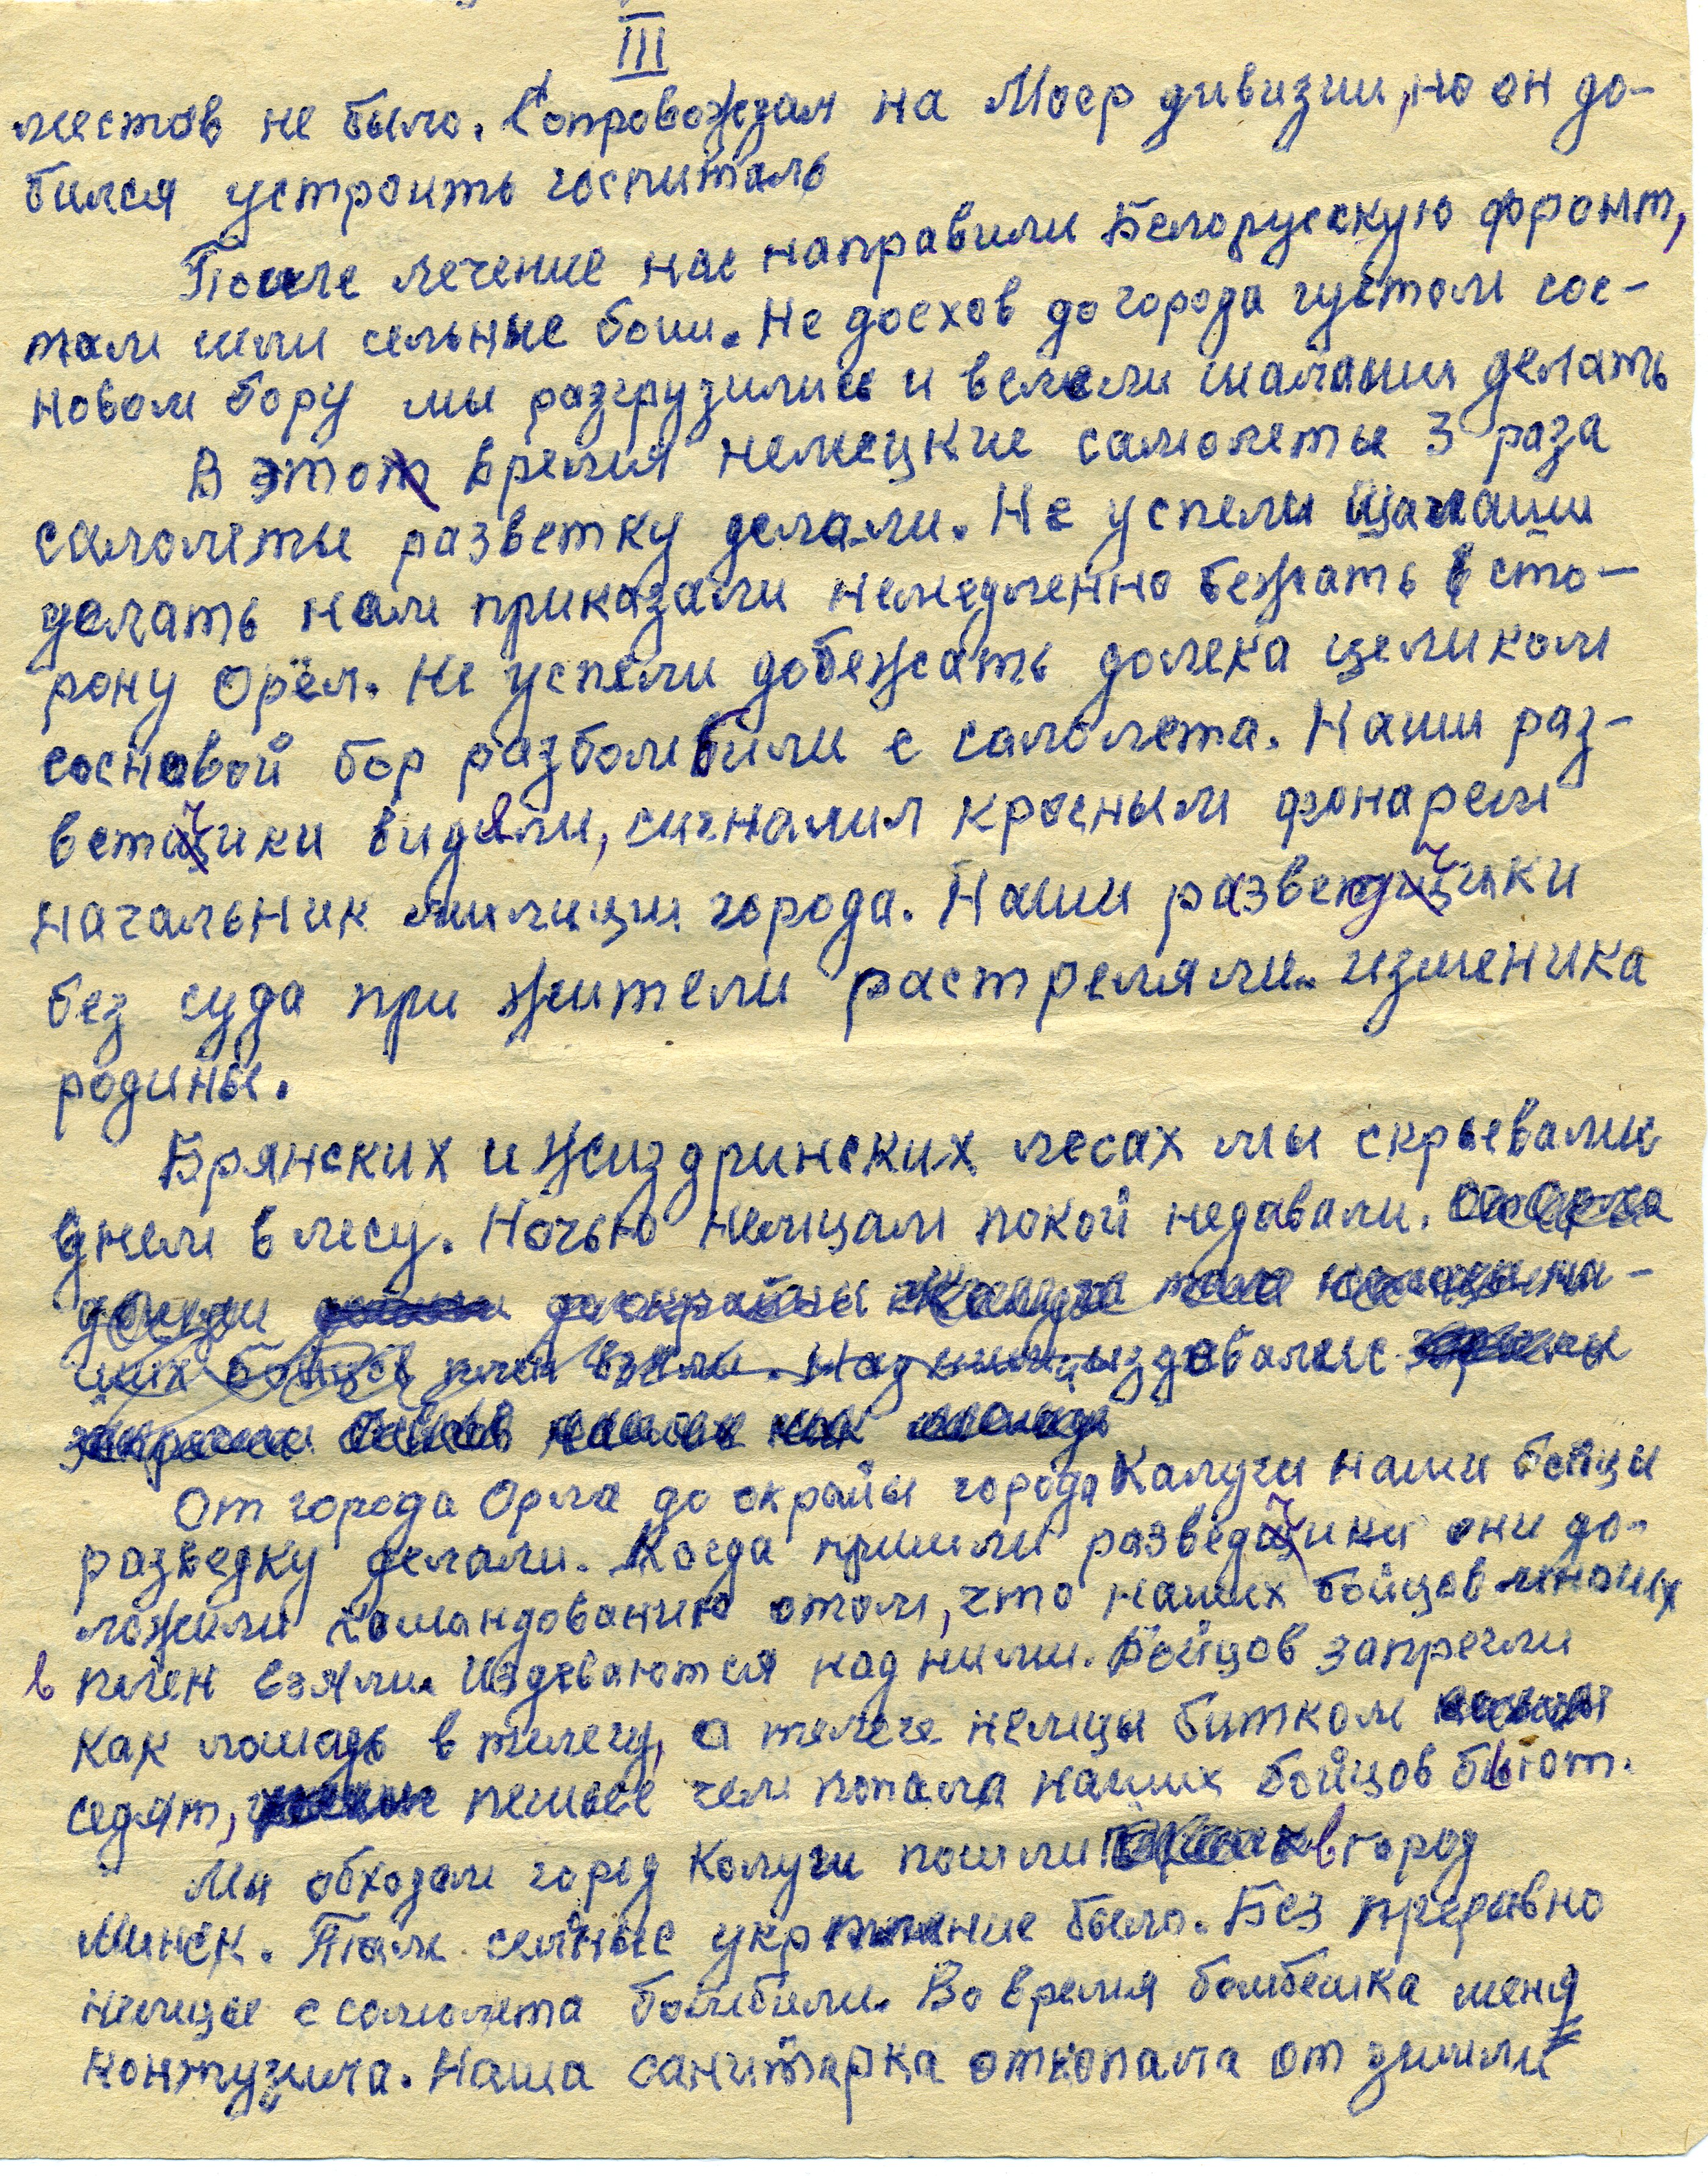 III
местов не было. Сопровождал на Моер дивизии, но он до-
бился устроить госпиталь
После лечение нас направили Белорускую фронт,
там шли сельные бои. Не доехов до города густом сос-
новом бору мы разгрузились и велели шалаши делать
В это время немецкие самолеты 3 раза
самолеты разветку делали. Не успели шалаши
делать нам приказали немедленно бежать в сто-
рону Орёл. Не успели добежать долека целиком
сосновой бор разбомбили с самолета. Наши раз-
ветчики видели, сигналил красным фонарем
начальник милиции города. Наши разведчики
без суда при жители растреляли изменика
родины.
Брянских и Жиздринских лесах мы скрывались
днем в лесу. Ночью немцам покой недавали.
до окрайны Калуга там немцы на-
ших бойцов плен взяли. Над ними издевались
От города Орла до окрайы города Калуги наши бойци
разведку делали. Когда пришли разведчики они до-
ложили командованию отом, что наших бойцов многих
в плен взяли. Издеваются над ними. Бойцов запрегли
как лошадь в телегу, а телеге немцы битком
седят, пешые чем попала наших бойцов бьют.
Мы обходам город Калуги пошли в город
Минск. Там сельные укрепление было. Без преравно
немцые с самолета бомбили. Во время бомбешка меня
контузила. Наша санитарка откопала от земли